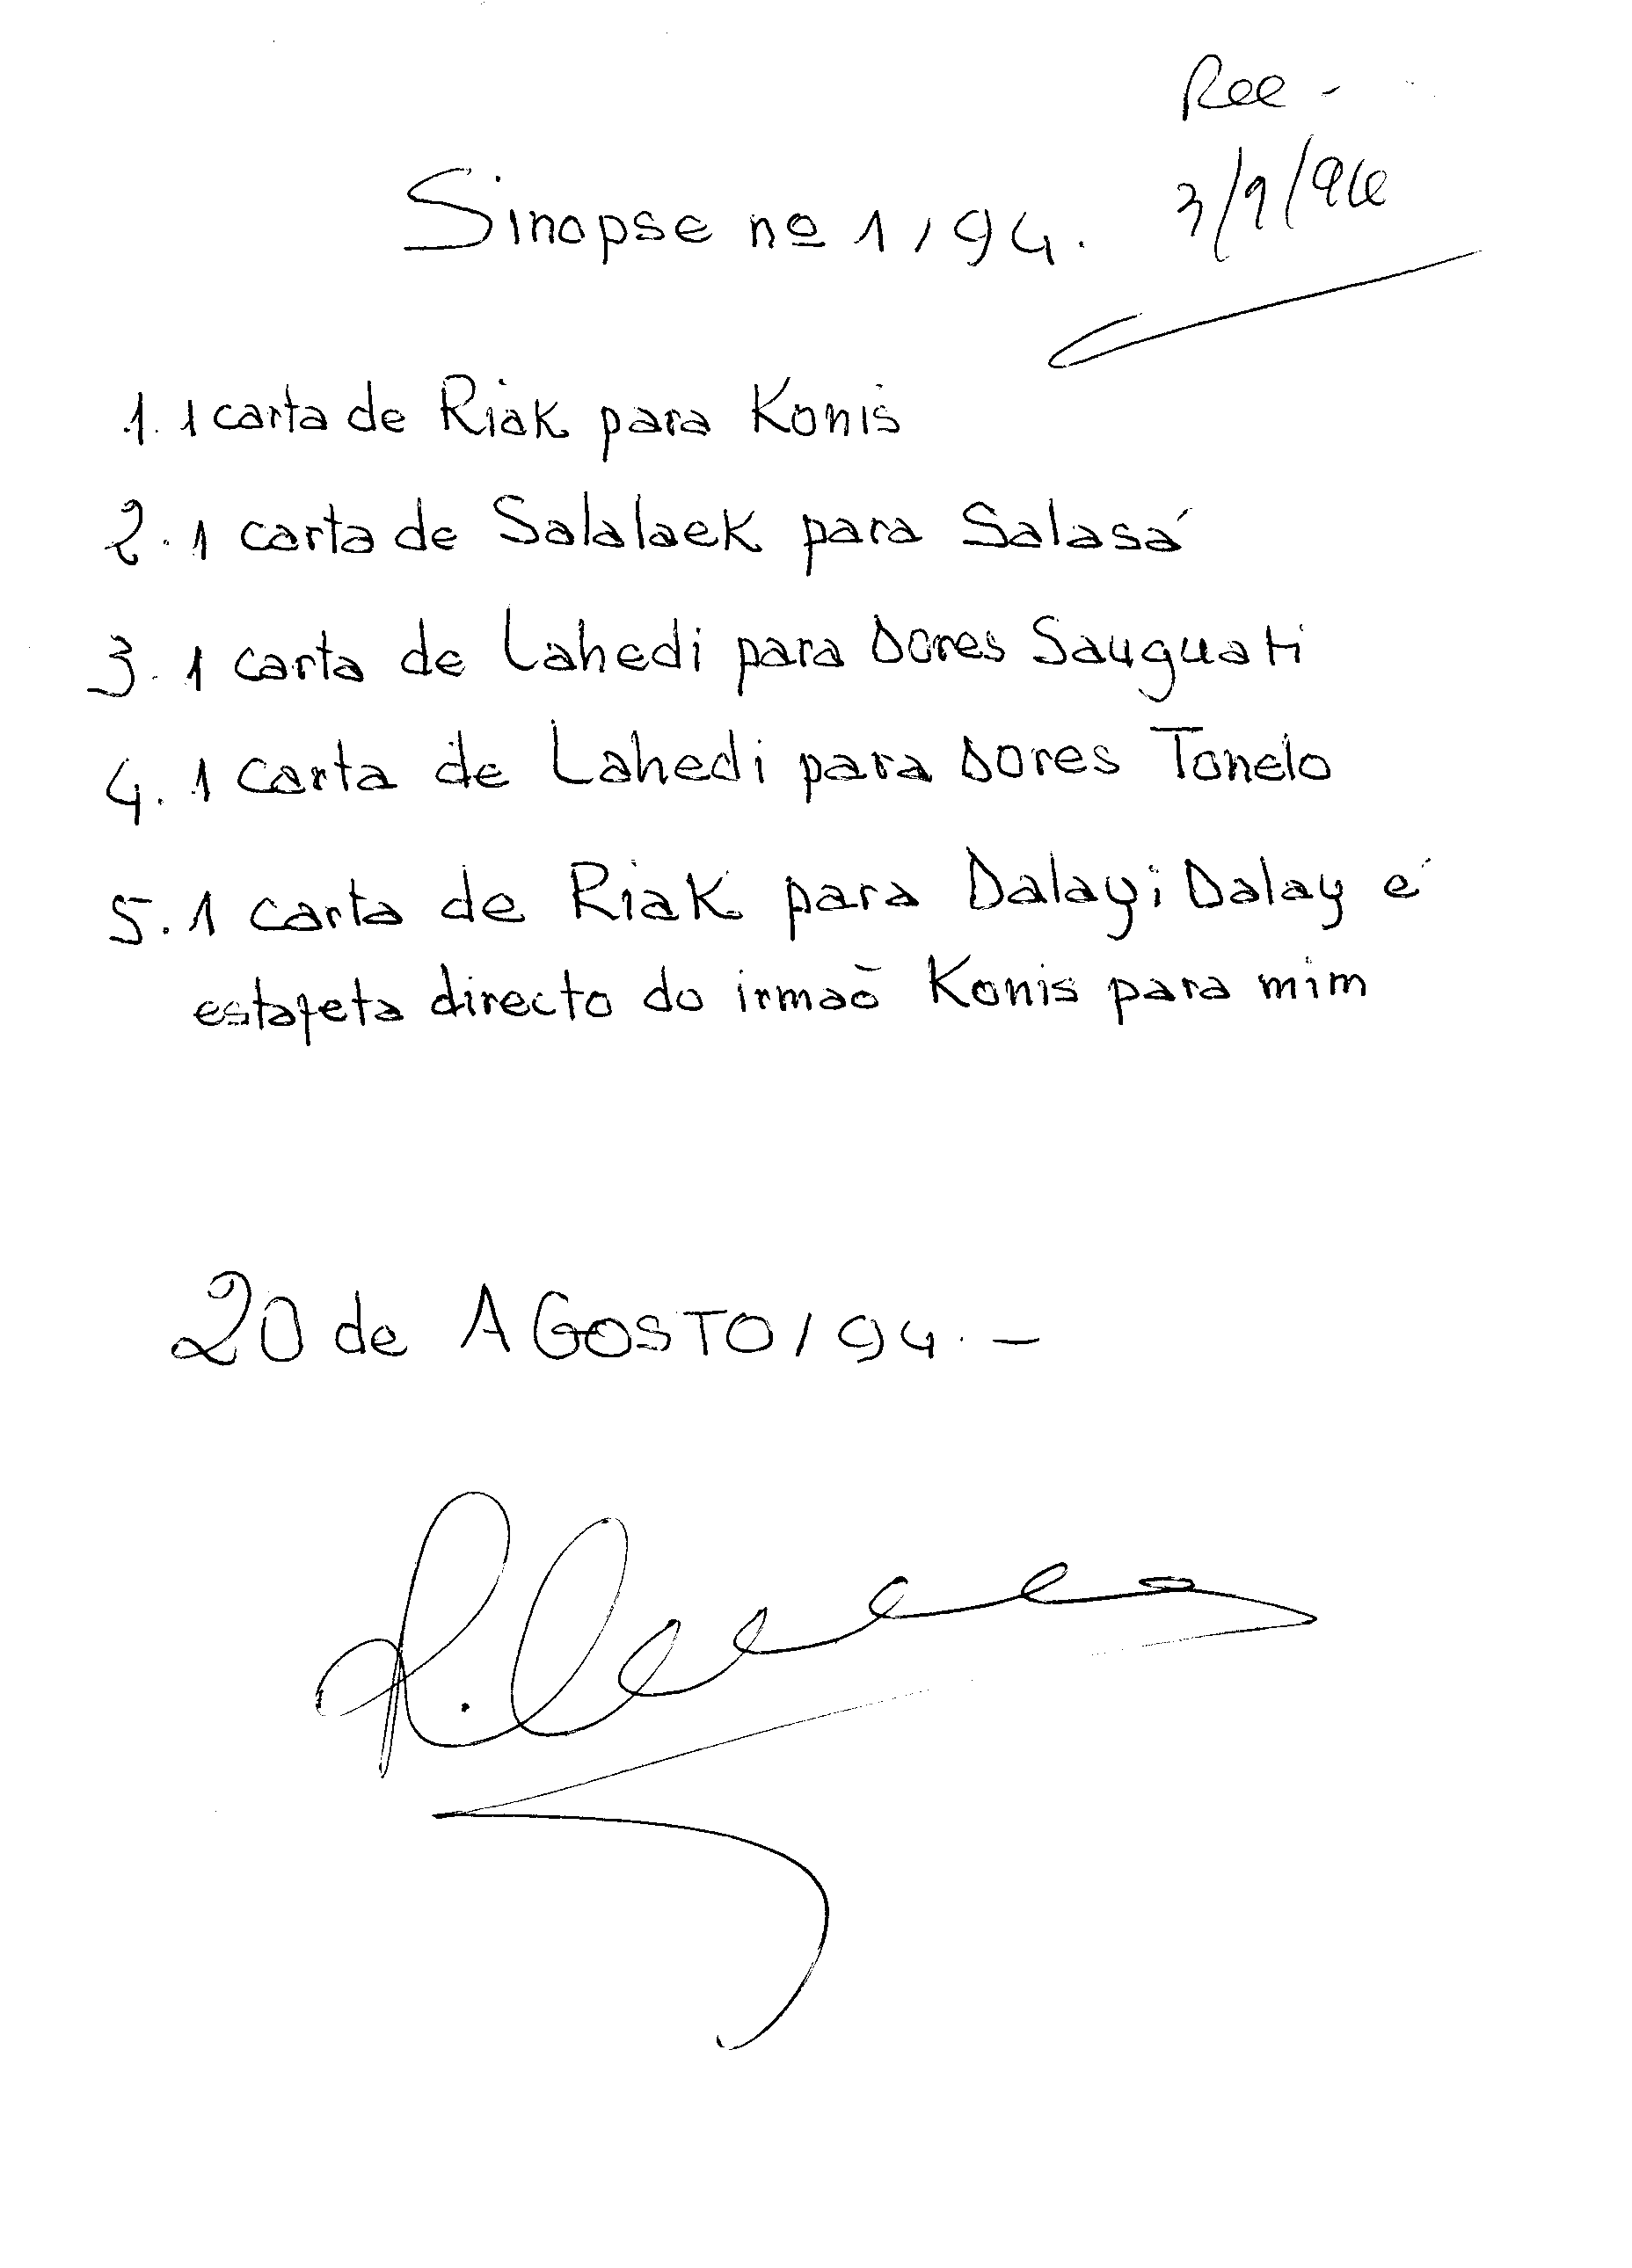 Rec -
3/9/94
Sinopse nº 1/94.
1. 1 carta de Riak para Konis
2. 1 carta de Salalaek para Salasá
3. 1 carta de Lahedi para Dores Sauguati
4. 1 carta de Lahedi para Dores Tonelo
5. 1 carta de Riak para Dalayi Dalay é
estafeta directo do irmaõ Konis para mim
20 de AGOSTO/94.-